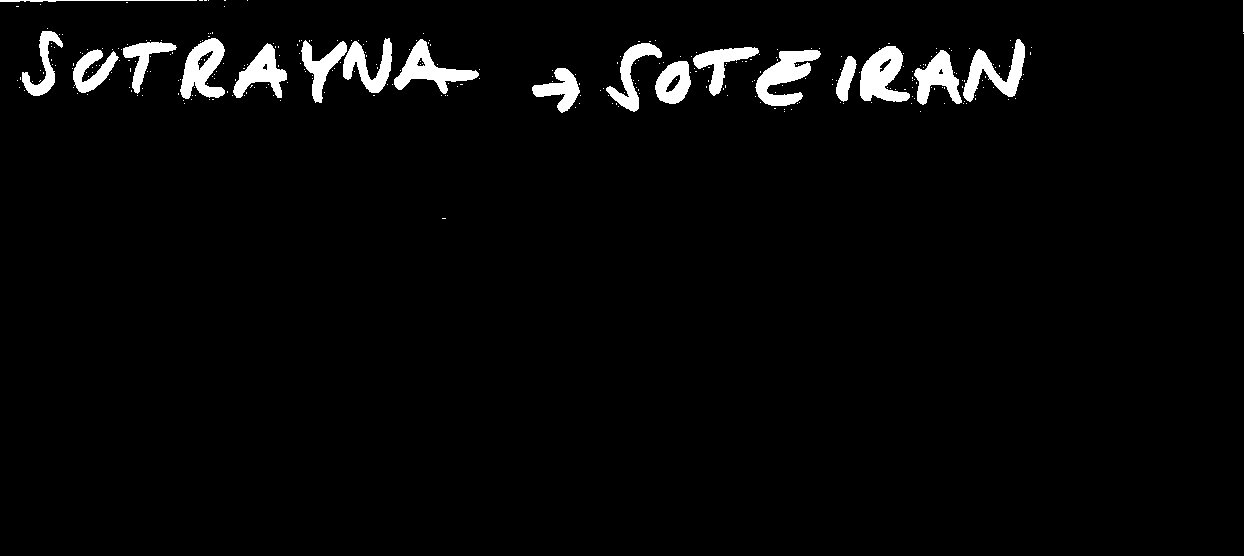 SOTRAYNA → SOTEIRAN